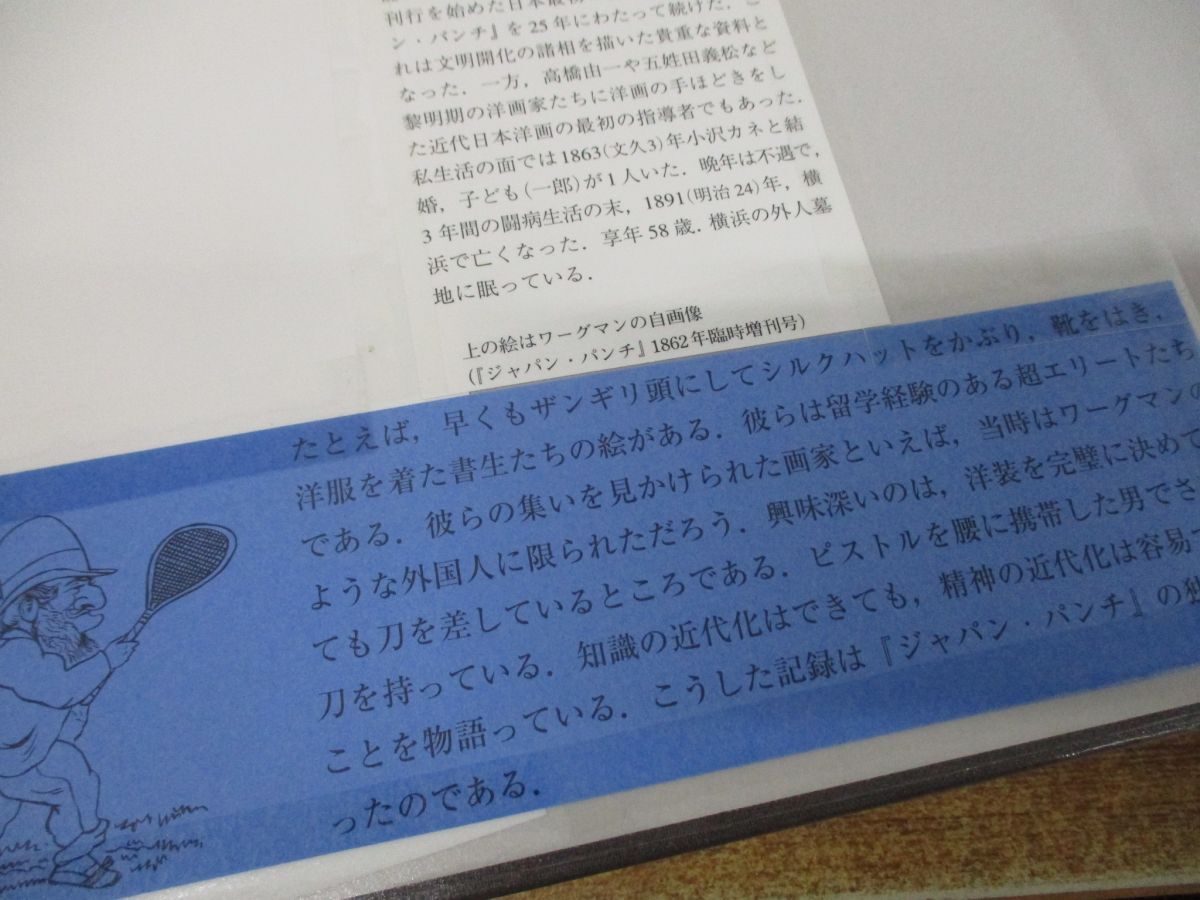 刊行を始めた日本最初
ン・パンチ』を25年にわたって続けた．こ
れは文明開化の諸相を描いた貴重な資料と
なった．一方，高橋由一や五姓田義松など
黎明期の洋画家たちに洋画の手ほどきをし
た近代日本洋画の最初の指導者でもあった．
私生活の面では1863(文久3)年小沢カネと結
婚，子ども(一郎)が1人いた．晩年は不遇で，
3年間の闘病生活の末，1891(明治24)年，横
浜で亡くなった．享年58歳．横浜の外人墓
地に眠っている．
上の絵はワーグマンの自画像
(『ジャパン・パンチ』1862年臨時増刊号)
たとえば，早くもザンギリ頭にしてシルクハットをかぶり，靴をはき，
洋服を着た書生たちの絵がある．彼らは留学経験のある超エリートたち
である．彼らの集いを見かけられた画家といえば，当時はワーグマンの
ような外国人に限られただろう．興味深いのは，洋装を完璧に決めて
ても刀を差しているところである．ピストルを腰に携帯した男でさ
刀を持っている．知識の近代化はできても，精神の近代化は容易で
ことを物語っている．こうした記録は『ジャパン・パンチ』の独
ったのである．